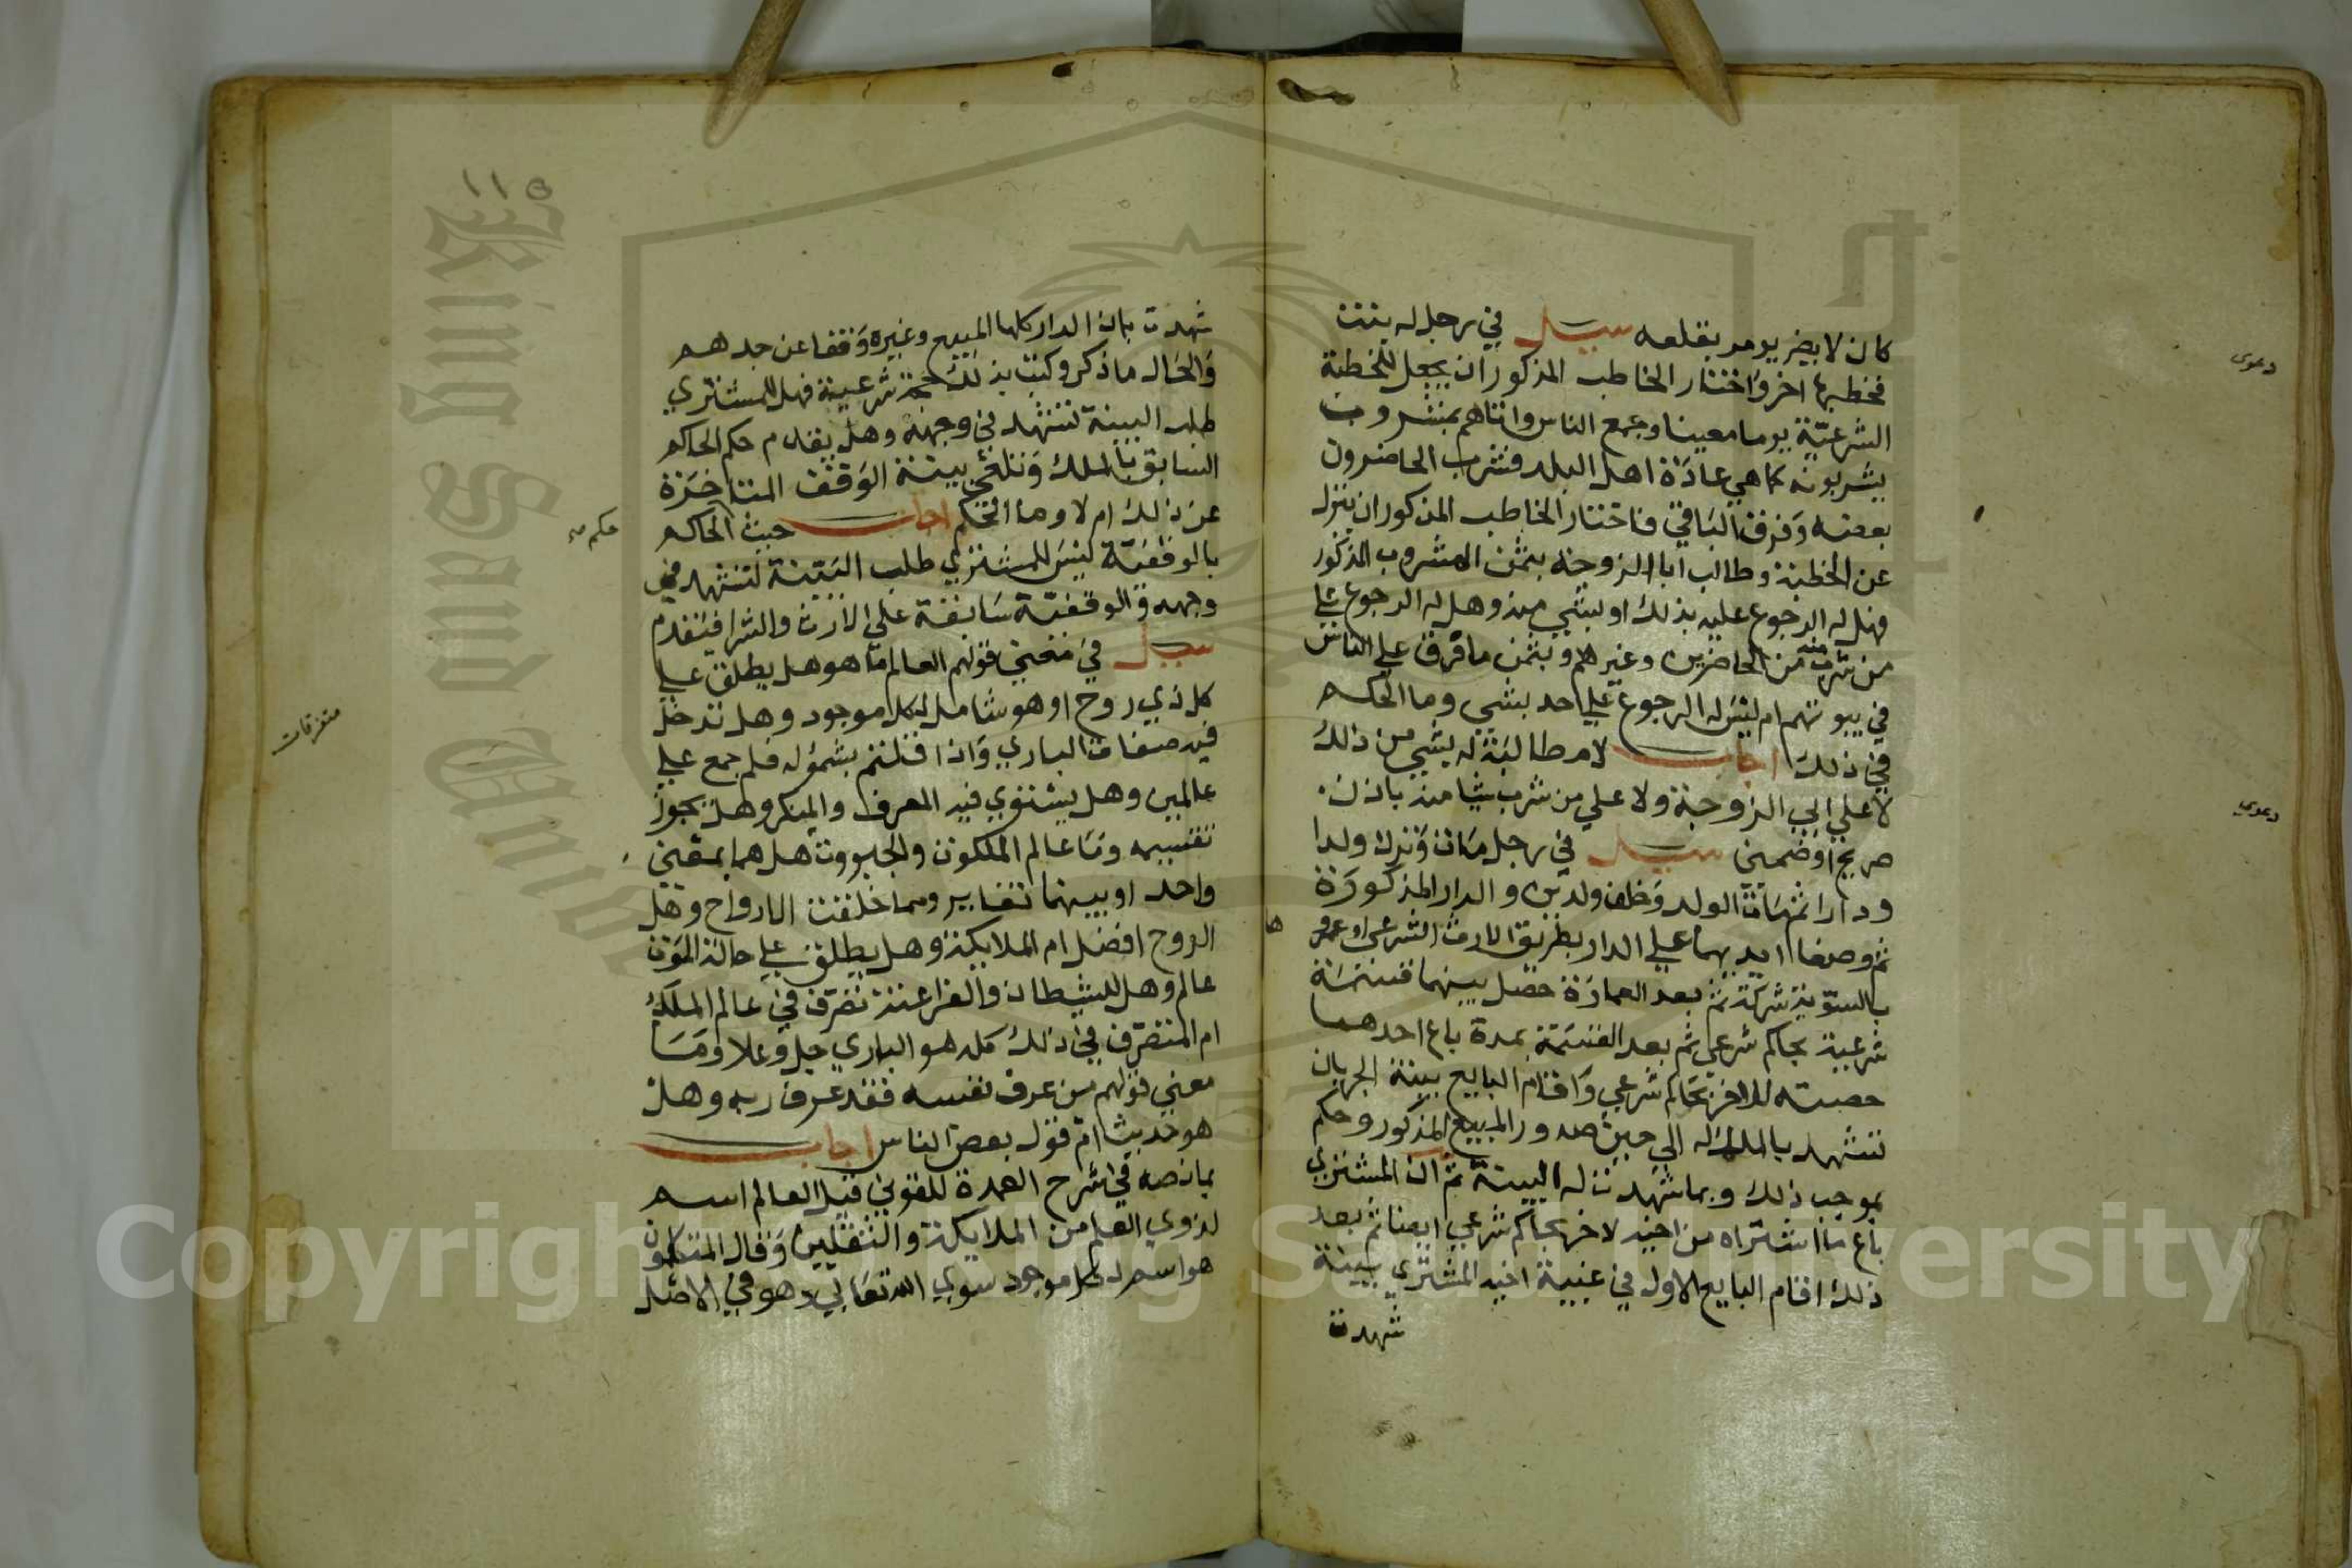 كان لا يضر يومر بقلعه سيل في رجل له بنت
فخطبها اخر واختار الخاطب المذكور ان يجعل للخطبة
الشرعية يوما معينا وجمع الناس واتاهم بمشروب
يشربونه كما هي عادة اهل البلد فشرب الحاضرون
بعضه وفرق الباقي فاختار الخاطب المذكور ان ينزل
عن الخطبة وطالب ابا الزوجة بثمن المشروب المذكور
فهل له الرجوع عليه بذلك او بشي منه وهل له الرجوع علي
من شرب منه من الحاضرين وغيرهم وبثمن ما فرق علي الناس
في بيوتهم ام ليس له الرجوع علي احد بشي وما الحكم
في ذلك اجاب لا مطالبة له بشي من ذلك
لا علي ابي الزوجة ولا علي من شرب شيا منه باذن
صريح او ضمني سيل في رجل مات وترك ولدا
ودارا ثم مات الولد وخلف ولدين والدار المذكورة
ثم وضعا ايديهما علي الدار بطريق الارث الشرعي وعمراها
بالسوية شركة ثم بعد العمارة حصل بينهما قسمة
شرعية بحاكم شرعي ثم بعد القسمة بمدة باع احدهما
حصته للاخر بحاكم شرعي واقام البايع بينة الجريان
تشهد بالملك له الي حين صدور المبيع المذكور وحكم
بموجب ذلك وبما شهدت له البينة ثم ان المشتري
باع ما اشتراه من اخيه لاخر بحاكم شرعي ايضا ثم بعد
ذلك اقام البايع الاول في غيبة اخيه المشتري بينة
شهدت
دعوى
دعوى
١١٥
شهدت بان الدار كلها المبيع وغيره وقفا عن جدهم
والحال ما ذكر وكتب بذلك حجة شرعية فهل للمشتري
طلب البينة لتشهد في وجهه وهل يقدم حكم الحاكم
السابق بالملك وتلغي بينة الوقف المتاخرة
عن ذلك ام لا وما الحكم اجاب حيث الحاكم
بالوقفية ليس للمشتري طلب البينة لتشهد في
وجهه والوقفية سابقة علي الارث والشرا فيقدم
سيل في معني قولهم العالم ما هو هل يطلق علي
كل ذي روح او هو شامل لكل موجود وهل تدخل
فيه صفات الباري واذا قلتم بشموله فلم جمع علي
عالمين وهل يستوي فيه المعرف والمنكر وهل يجوز
تقسيمه وما عالم الملكوت والجبروت هل هما بمعني
واحد او بينهما تغاير ومما خلقت الارواح وهل
الروح افضل ام الملايكة وهل يطلق علي حالة الموت
عالم وهل للشيطان والفراعنة تصرف في عالم الملك
ام المتصرف في ذلك كله هو الباري جل وعلا وما
معني قولهم من عرف نفسه فقد عرف ربه وهل
هو حديث ام قول بعض الناس اجاب
بما نصه في شرح العمدة للقونوي قيل العالم اسم
لذوي العلم من الملايكة والثقلين وقال المتكلمون
هو اسم لكل موجود سوي الله تعالي وهو في الاصل
حكم
متفرقات
Copyright © King Saud University